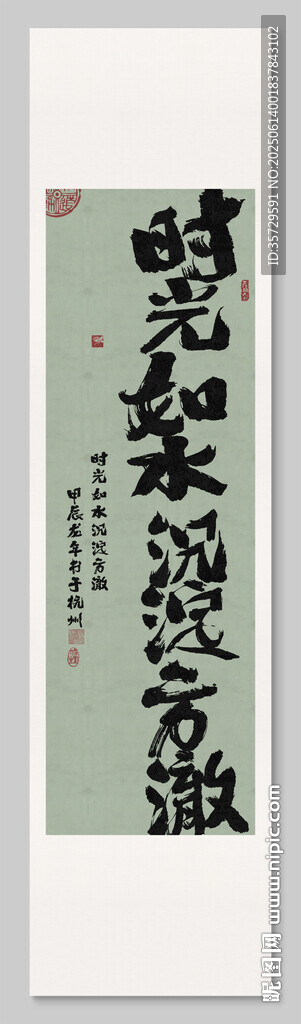 时光如水沉淀方澈
时光如水沉淀方澈
甲辰龙年书于杭州
ID:35729591 NO:20250614001837843102
昵图网 www.nipic.com